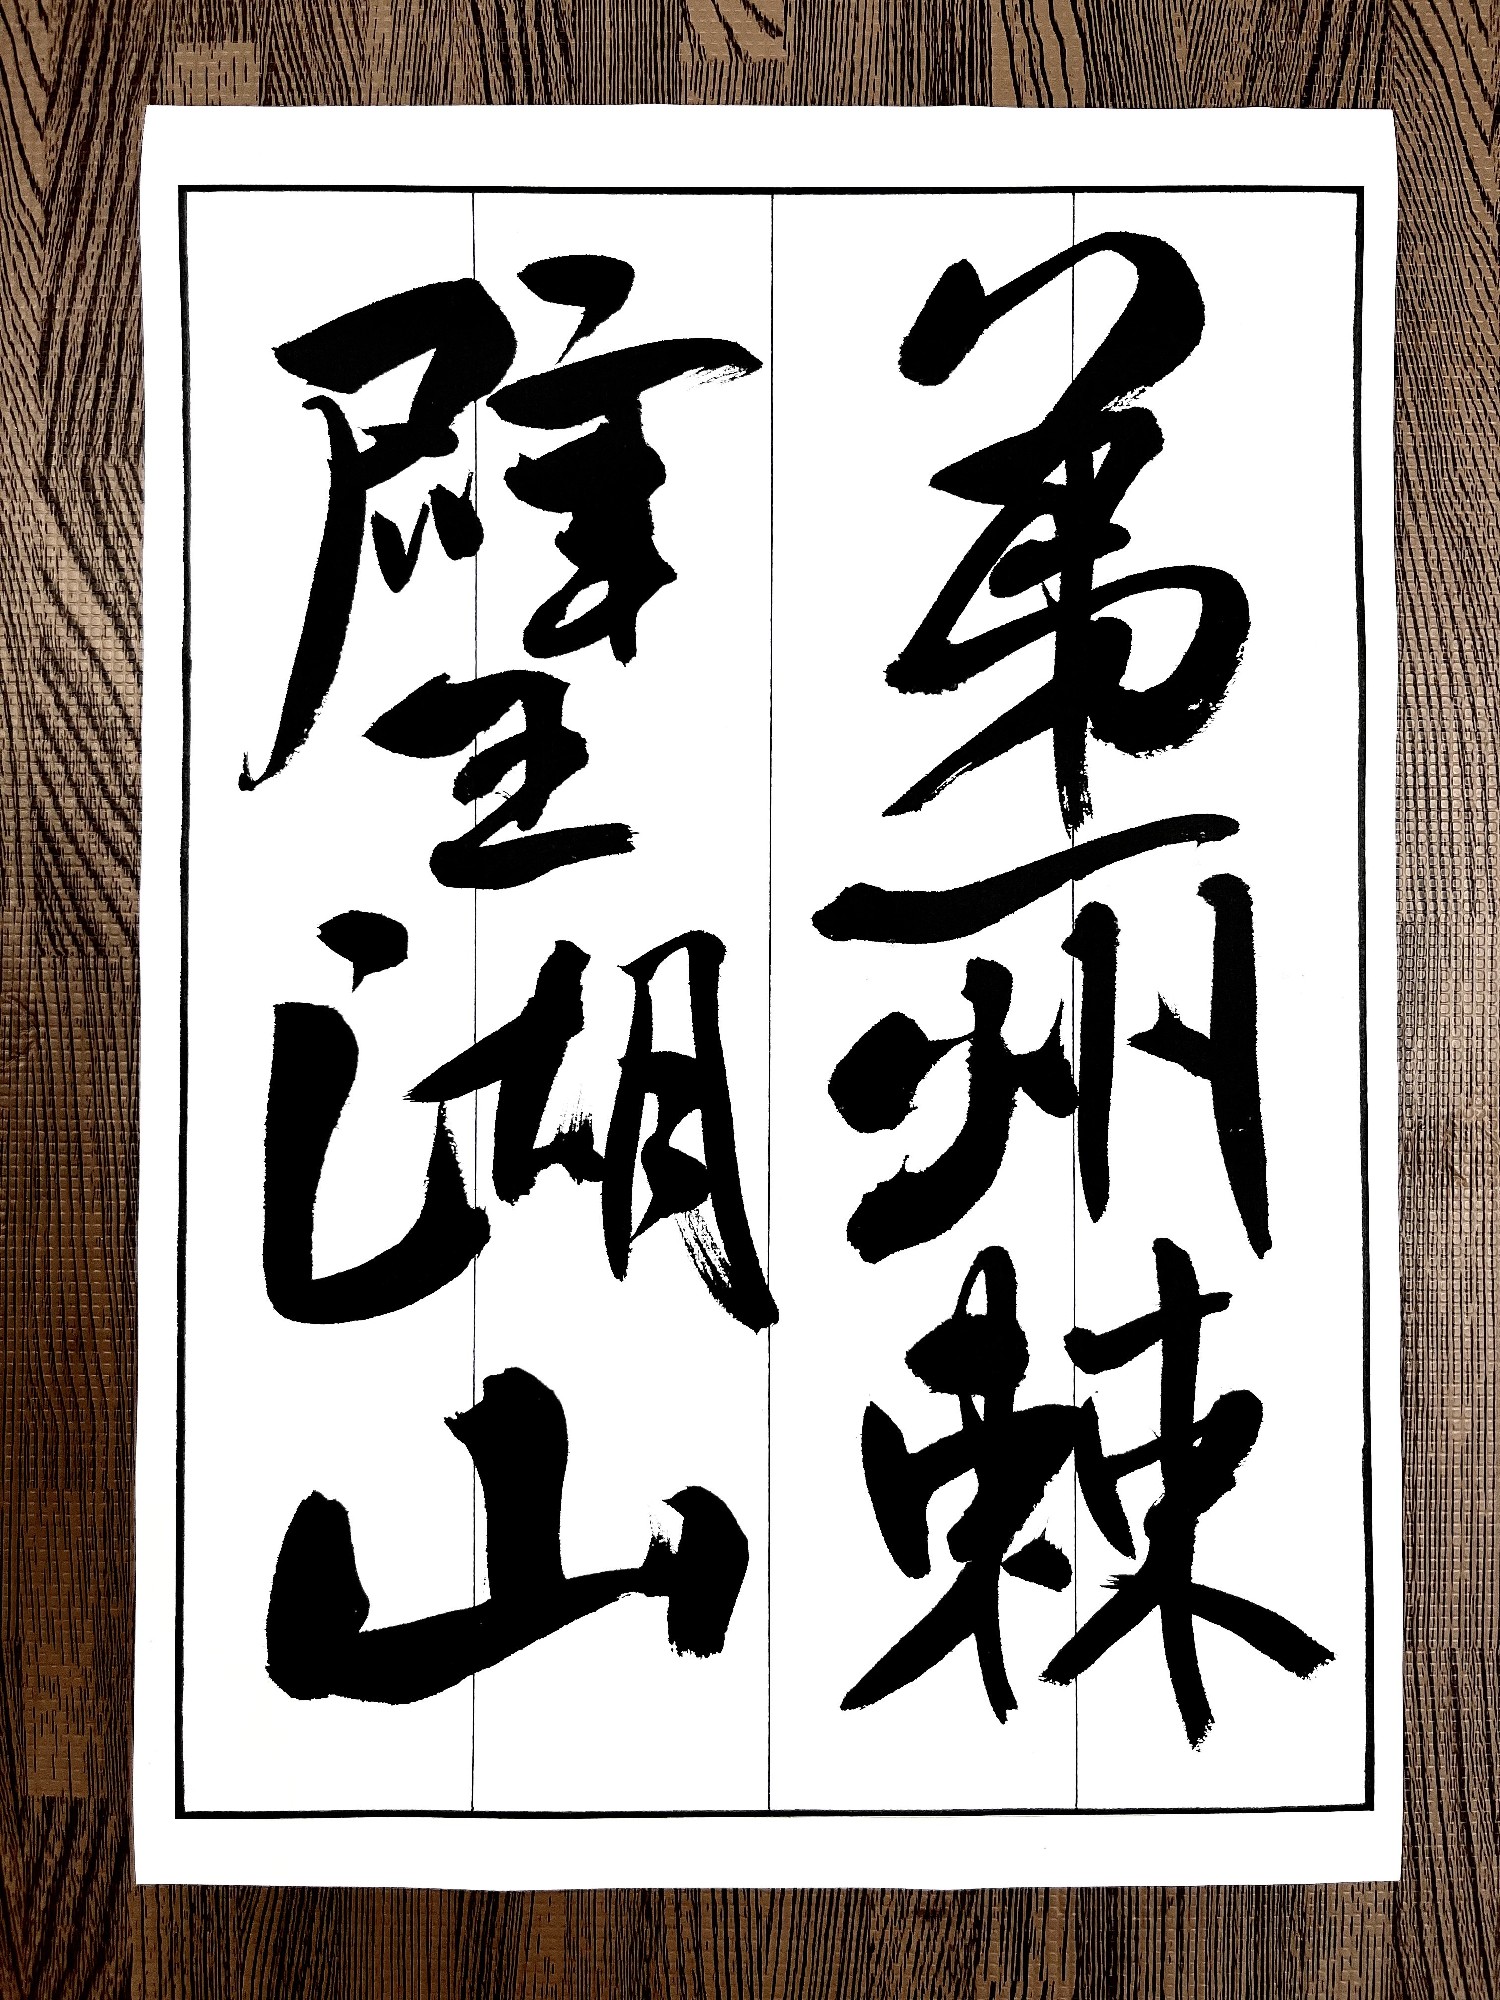 第一州棘
璧湖山